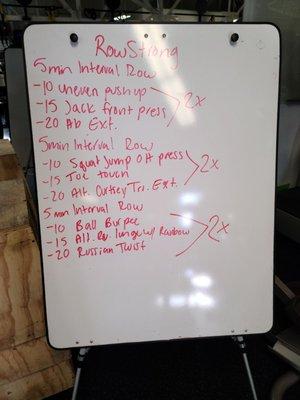 RowStrong
5min Interval Row
-10 uneven push up
-15 Jack front press
2x
-20 Ab Ext.
5min Interval Row
-10 Squat Jump OH press
-15 Toe touch
2x
-20 Alt. Curtsey Tri. Ext.
5min Interval Row
-10 Ball Burpee
-15 Alt. Rv. lunge w/ Rainbow
2x
-20 Russian Twist